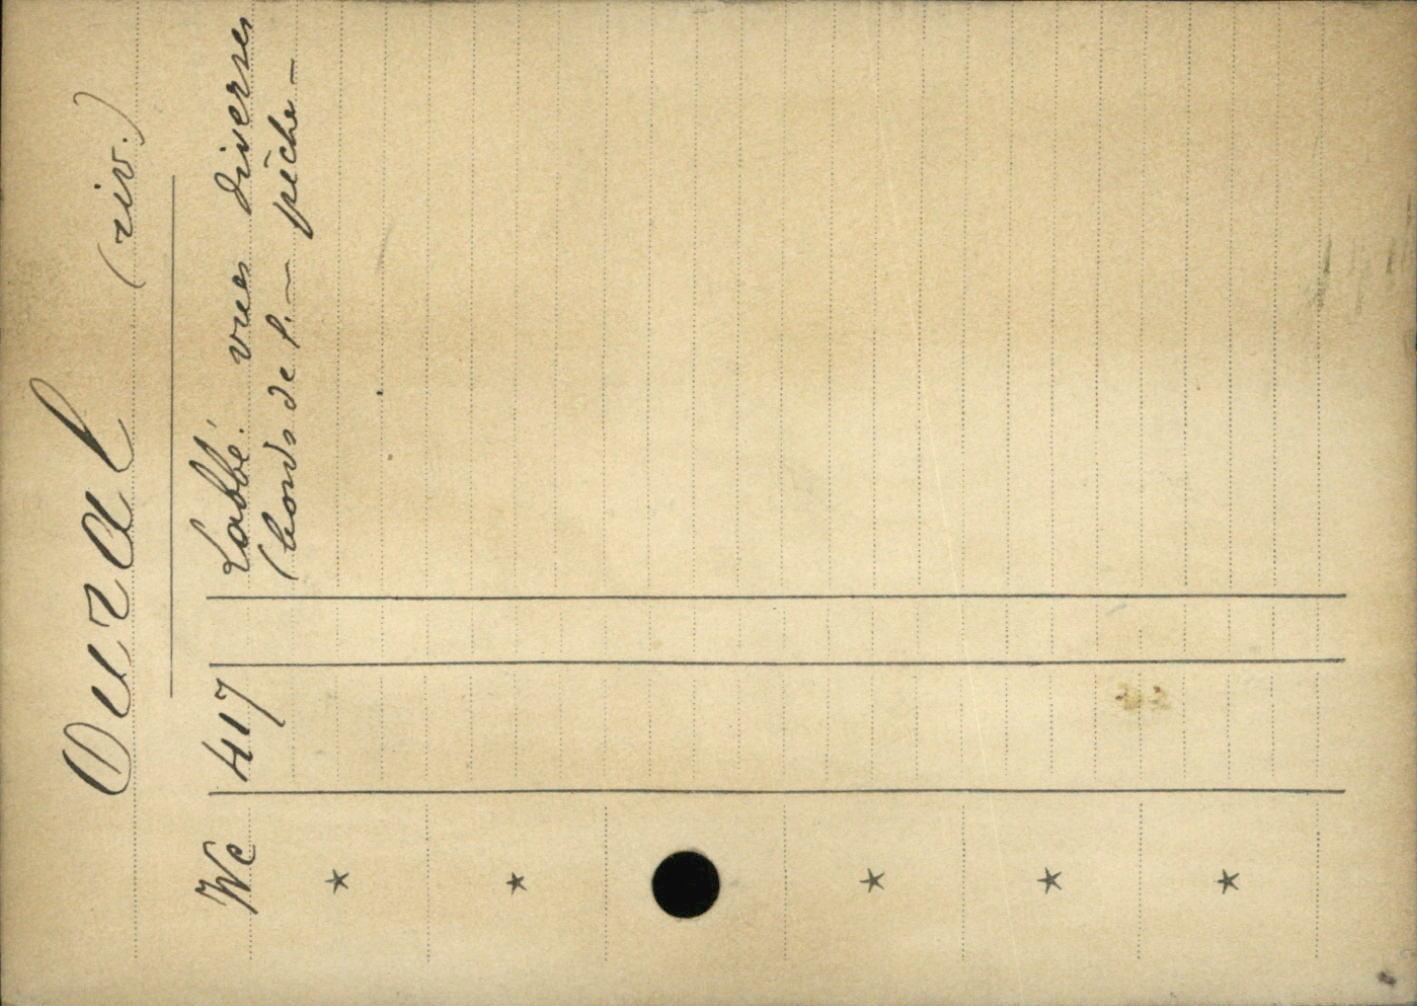 Oural (riv.)
We 417 Labbé. vues diverses
(bords de l. — pêche —